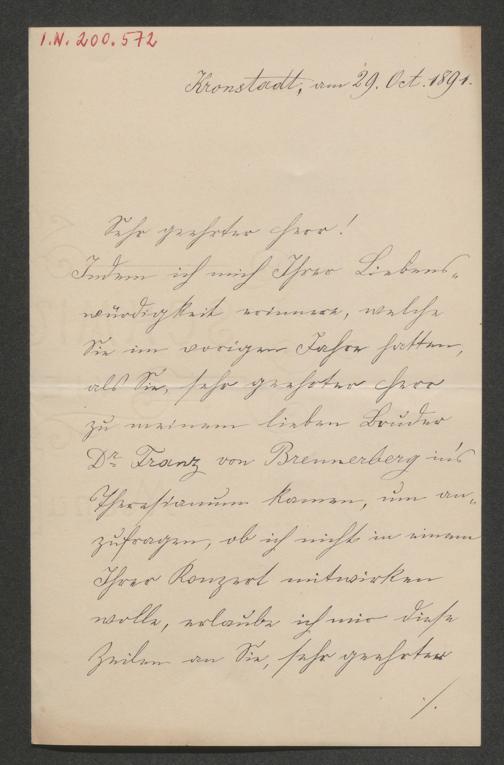 I.N. 200.572
Kronstadt, am 29. Oct. 1891.
Sehr geehrter Herr!
Indem ich mich Ihrer Liebens-
würdigkeit erinnere, welche
Sie im vorigen Jahre hatten,
als Sie, sehr geehrter Herr
zu meinem lieben Bruder
Dr. Franz von Brennerberg in's
Theresianum kamen, um an-
zufragen, ob ich nicht in einem
Ihrer Konzert mitwirken
wolle, erlaube ich mir diese
Zeilen an Sie, sehr geehrter
./.